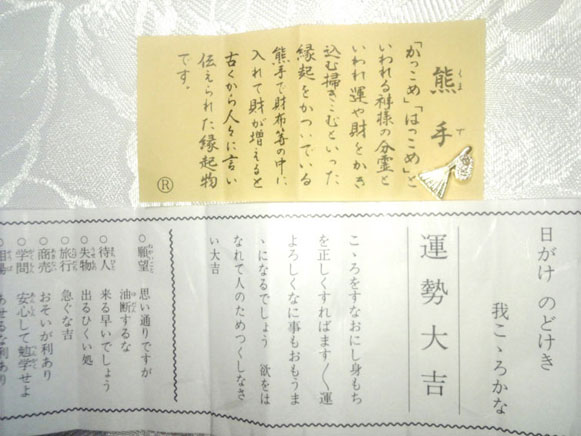 熊手
くまで
「かっこめ」「はっこめ」と
いわれる神様の分霊と
いわれ運や財をかき
込む掃きこむといった
縁起をかついでいる
熊手で財布等の中に
入れて財が増えると
古くから人々に言い
伝えられた縁起物
です。
®
日がけ のどけき
我こゝろかな
運勢大吉
こゝろをすなおにし身もち
を正しくすればます〱運
よろしくなに事もおもうま
ゝになるでしょう 欲をは
なれて人のためつくしなさ
い大吉
○願望 思い通りですが
油断するな
○待人 来る早いでしょう
○失物 出るひくい処
○旅行 急ぐな吉
○商売 おそいが利あり
○学問 安心して勉学せよ
○相場 あせるな利あり